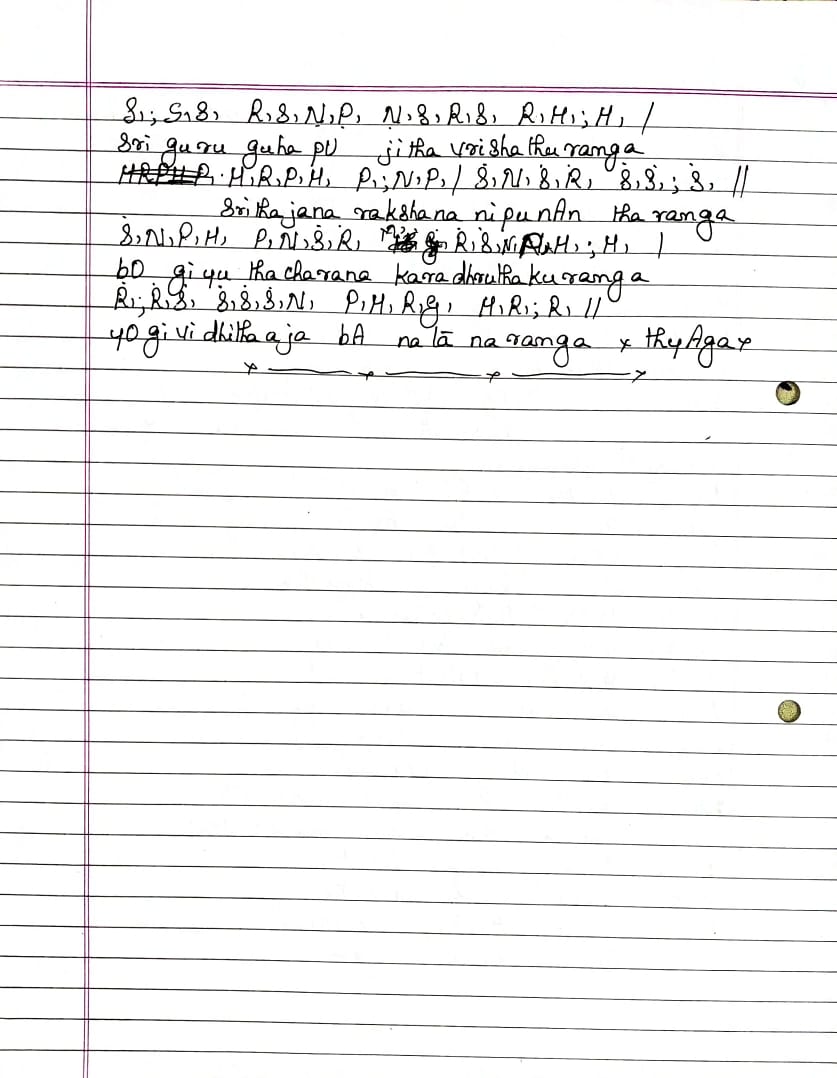 S,;S,S, R,S,Ṇ,P̣, Ṇ,S,R,S, R,H,;H, /
Sri guru guha pU jitha vrishathuranga
H,R,P,H, P,;N,P, / Ṡ,N,Ṡ,Ṙ, Ṡ,Ṡ,;Ṡ, //
Srithajana rakshana nipunAn tharanga
Ṡ,N,P,H, P,N,Ṡ,Ṙ, Ṙ,Ṡ,N, H,;H, /
bO giyu thacharana karadhruthakuranga
Ṙ,;Ṙ,Ṡ, Ṡ,Ṡ,Ṡ,N, P,H,R,g, H,R,;R, //
yOgividhithaaja bA na lā naranga x thyAgax